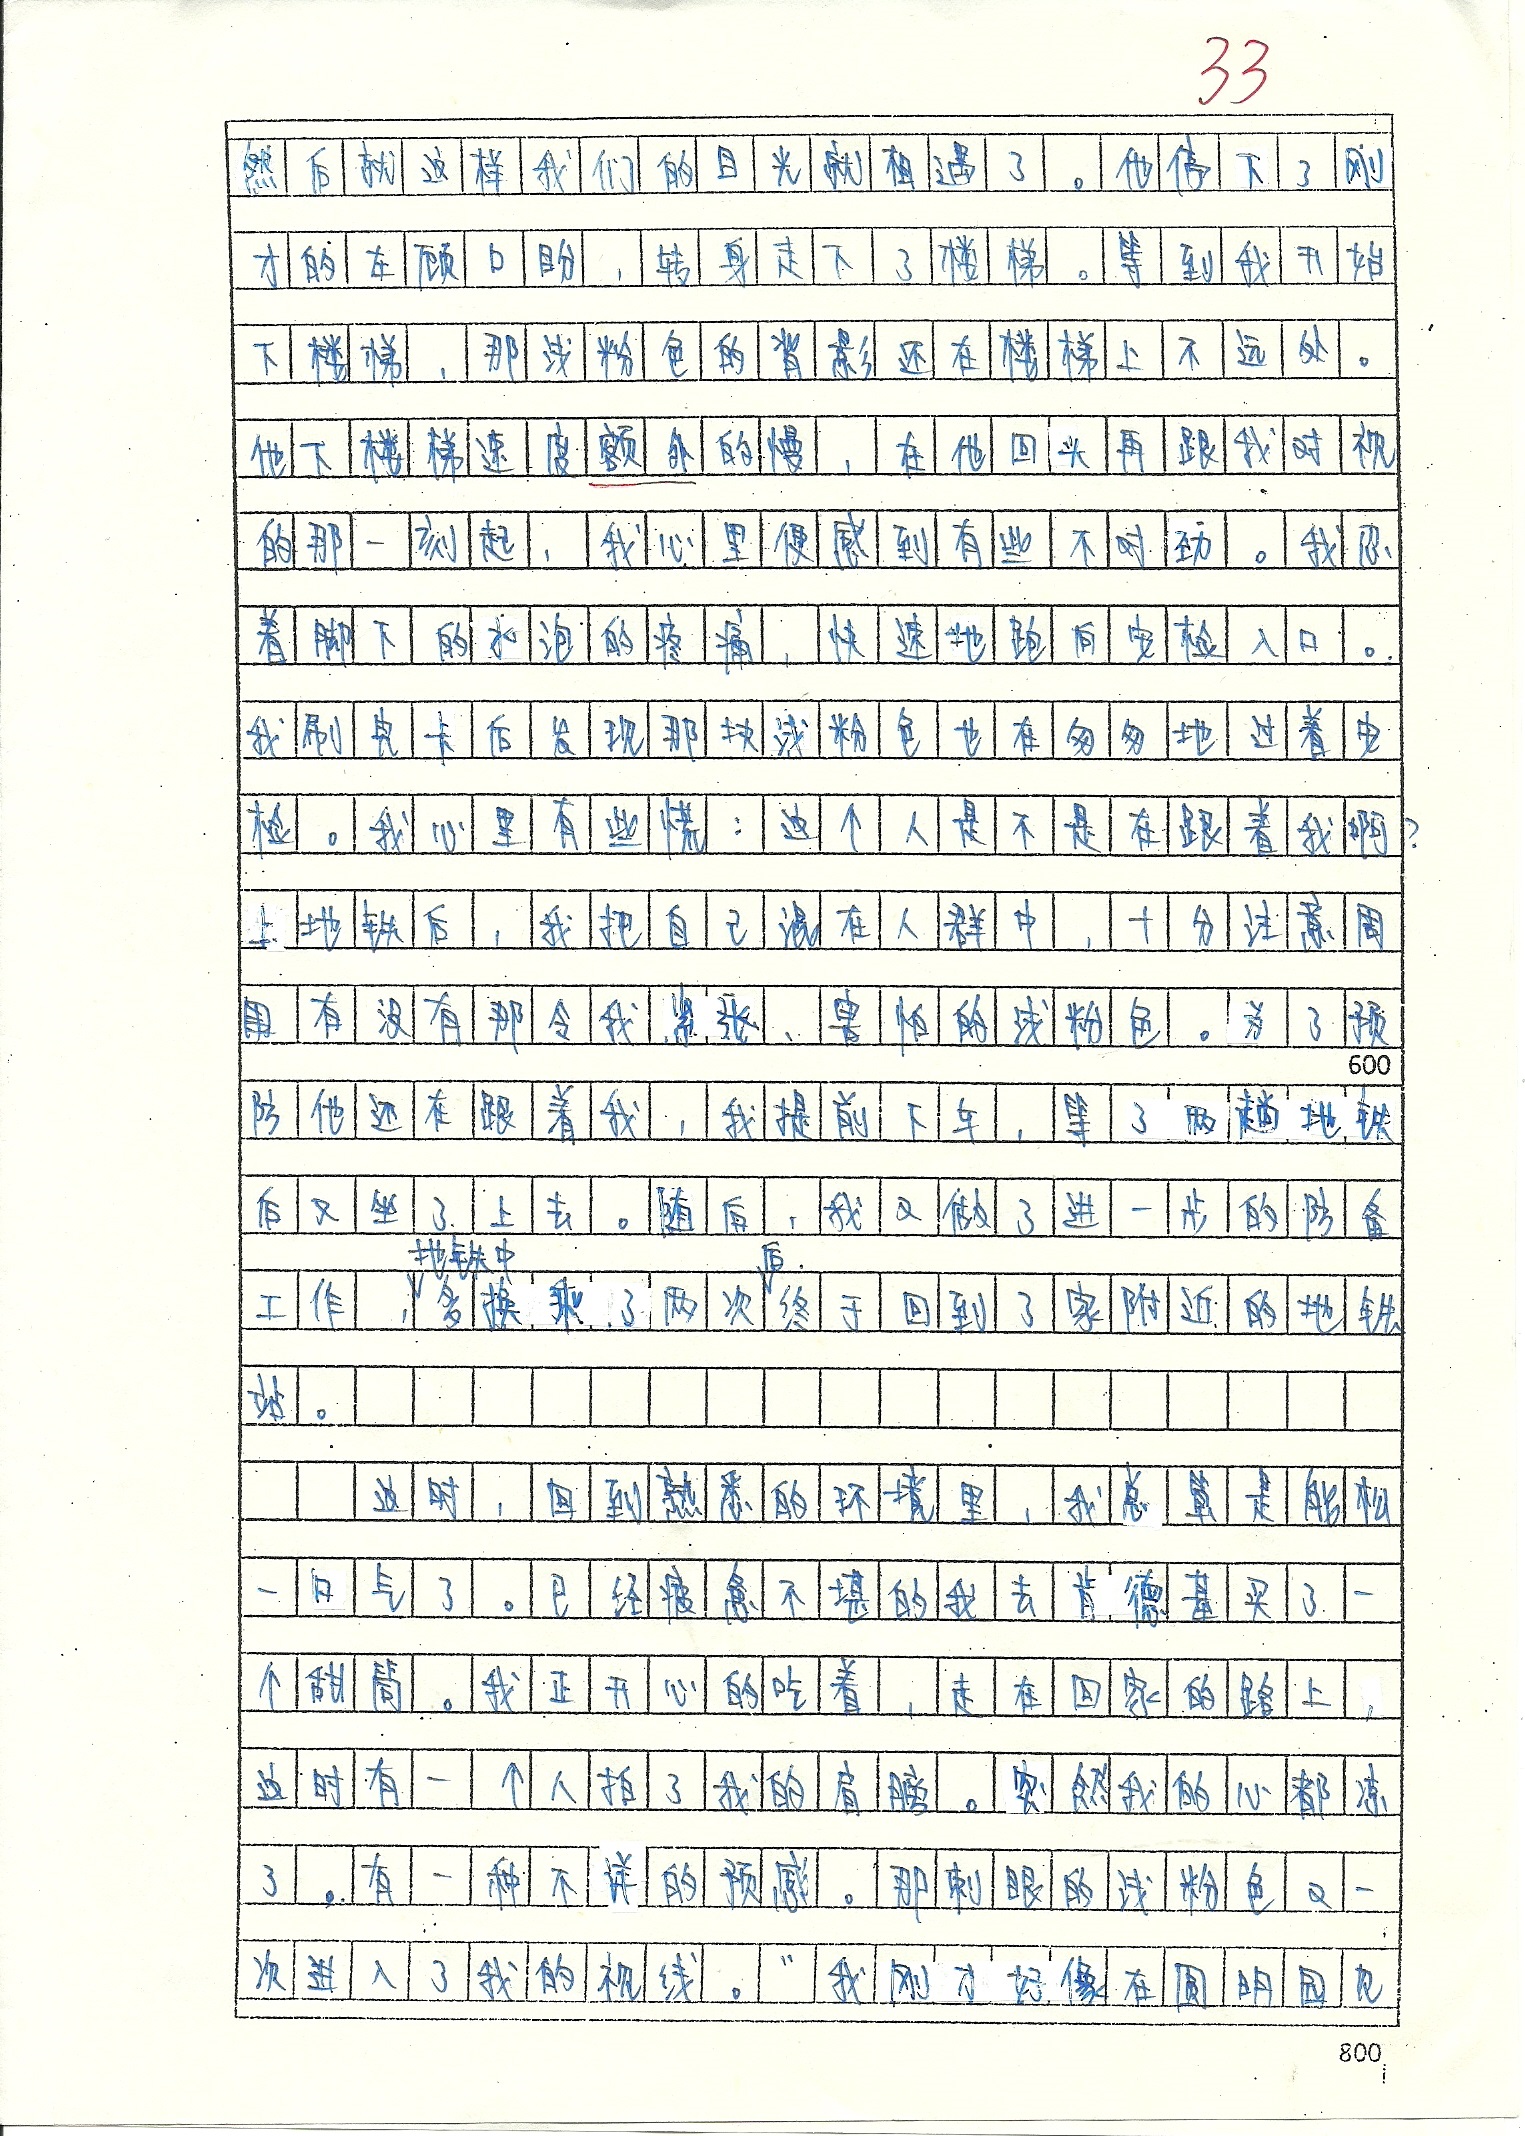 33
然后就这样我们的目光就相遇了。他停下了刚
才的左顾口盼,转身走下了楼梯。等到我开始
下楼梯,那浅粉色的背影还在楼梯上不远处。
他下楼梯速度额外的慢,在他回头再跟我对视
的那一刻起,我心里便感到有些不对劲。我忍
着脚下的水泡的疼痛,快速地跑向安检入口。
我刷完卡后发现那块浅粉色也在匆匆地过着安
检。我心里有些慌:这个人是不是在跟着我啊?
上地铁后,我把自己混在人群中,十分注意周
围有没有那令我紧张、害怕的浅粉色。为了预
600
防他还在跟着我,我提前下车,等了两趟地铁
后又坐了上去。随后,我又做了进一步的防备
地铁中 后
工作,多换乘了两次终于回到了家附近的地铁
站。
这时,回到熟悉的环境里,我总算是能松
一口气了。已经疲惫不堪的我去肯德基买了一
个甜筒。我正开心的吃着,走在回家的路上,
这时有一个人拍了我的肩膀。突然我的心都凉
了。有一种不详的预感。那刺眼的浅粉色又一
次进入了我的视线。“我刚才好像在圆明园见
800